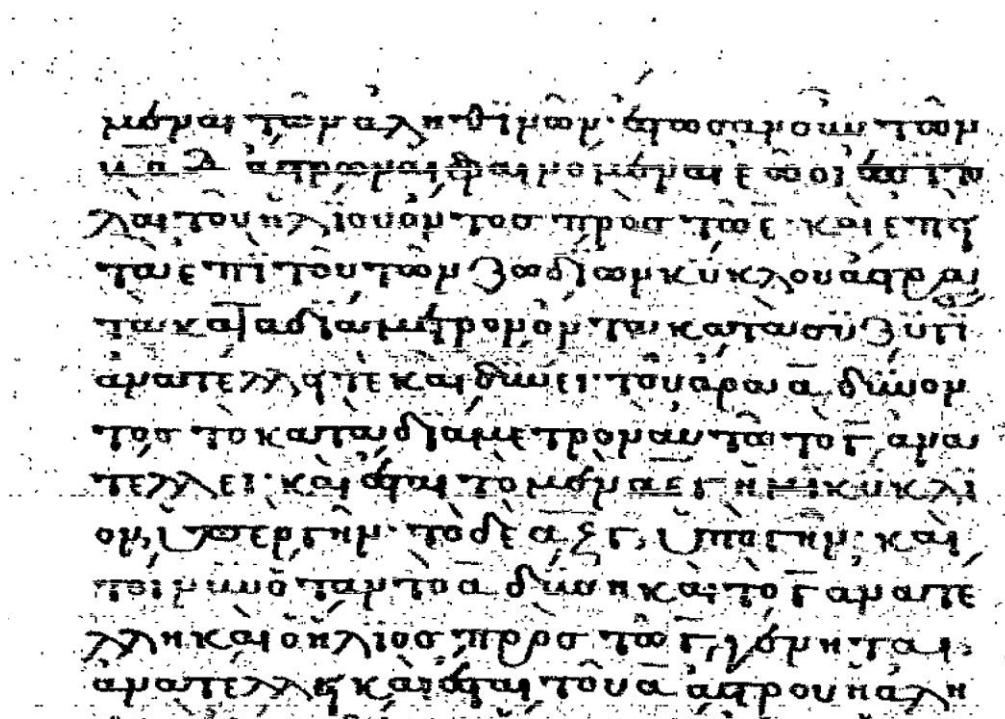 μεναι τῶν ἀληθινῶν· τῶν
φαινόμεναι ἑῶοι
λαὶ τοῦ ἡλίου ὄντος πρὸς τῶ ε· καὶ ἐπεὶ
τὰ ἐπὶ τοῦ τῶν ζωδίων κύκλου ἄστρα
τὰ κατὰ διάμετρον ὄντα κατὰ συζυγί
ἀνατέλλει τε καὶ δύνει· τοῦ ἄρα α δύνον
τος τὸ κατὰ διάμετρον αὐτῶ τὸ γ ἀνα
τέλλει· καὶ ἔσται τὸ μὲν αεγ ἡμικύκλι
ον, ὑπὲρ γῆν· τὸ δὲ αζγ, ὑπὸ γῆν· καὶ
ὅταν τὸ α δύνη καὶ τὸ γ ἀνατέ
λλη καὶ ὁ ἥλιος πρὸς τῶ γ, γένηται·
ἀνατέλλει καὶ ἔσται τοῦ α ἄστρου ἡ ἀλη